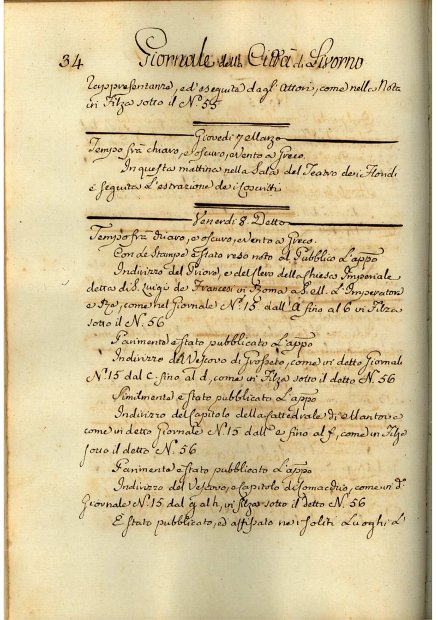 34 Giornale della Città di Livorno
Rappresentanze, ed eseguita dagl' Attori, come nella Nota
in Filza sotto il N.º 55
Giovedì 7 Marzo
Tempo frà chiaro, e oscuro, e Vento a Greco.
In questa mattina nella Sala del Teatro dei Floridi
è seguita l'estrazione de i Coscritti
Venerdì 8. Detto
Tempo frà chiaro, e oscuro, e Vento a Greco.
Con de Stampe è stato reso noto al Pubblico l'appo
Indirizzo del Priore, e del Clero della Chiesa Imperiale
detta di S. Luigi de Francesi in Roma a S. M. l'Imperatore
e Re, come nel Giornale N.º 15 dall' a fino al b in Filza
sotto il N. 56
Parimente è stato pubblicato l'appo
Indirizzo del Vescovo di Grosseto, come in detto Giornale
N.º 15 dal c fino al d, come in Filza sotto il detto N. 56
Similmente è stato pubblicato l'appo
Indirizzo del Capitolo della Cattedrale di Mantova
come in detto Giornale N.º 15 dall' e fino al f, come in Filza
sotto il detto N. 56
Parimente è stato pubblicato l'appo
Indirizzo del Vescovo, e Capitolo di Comacchio, come in d.º
Giornale N.º 15 dal g al h, in filza sotto il detto N. 56
È stato pubblicato, ed affissato ne i soliti Luoghi l'